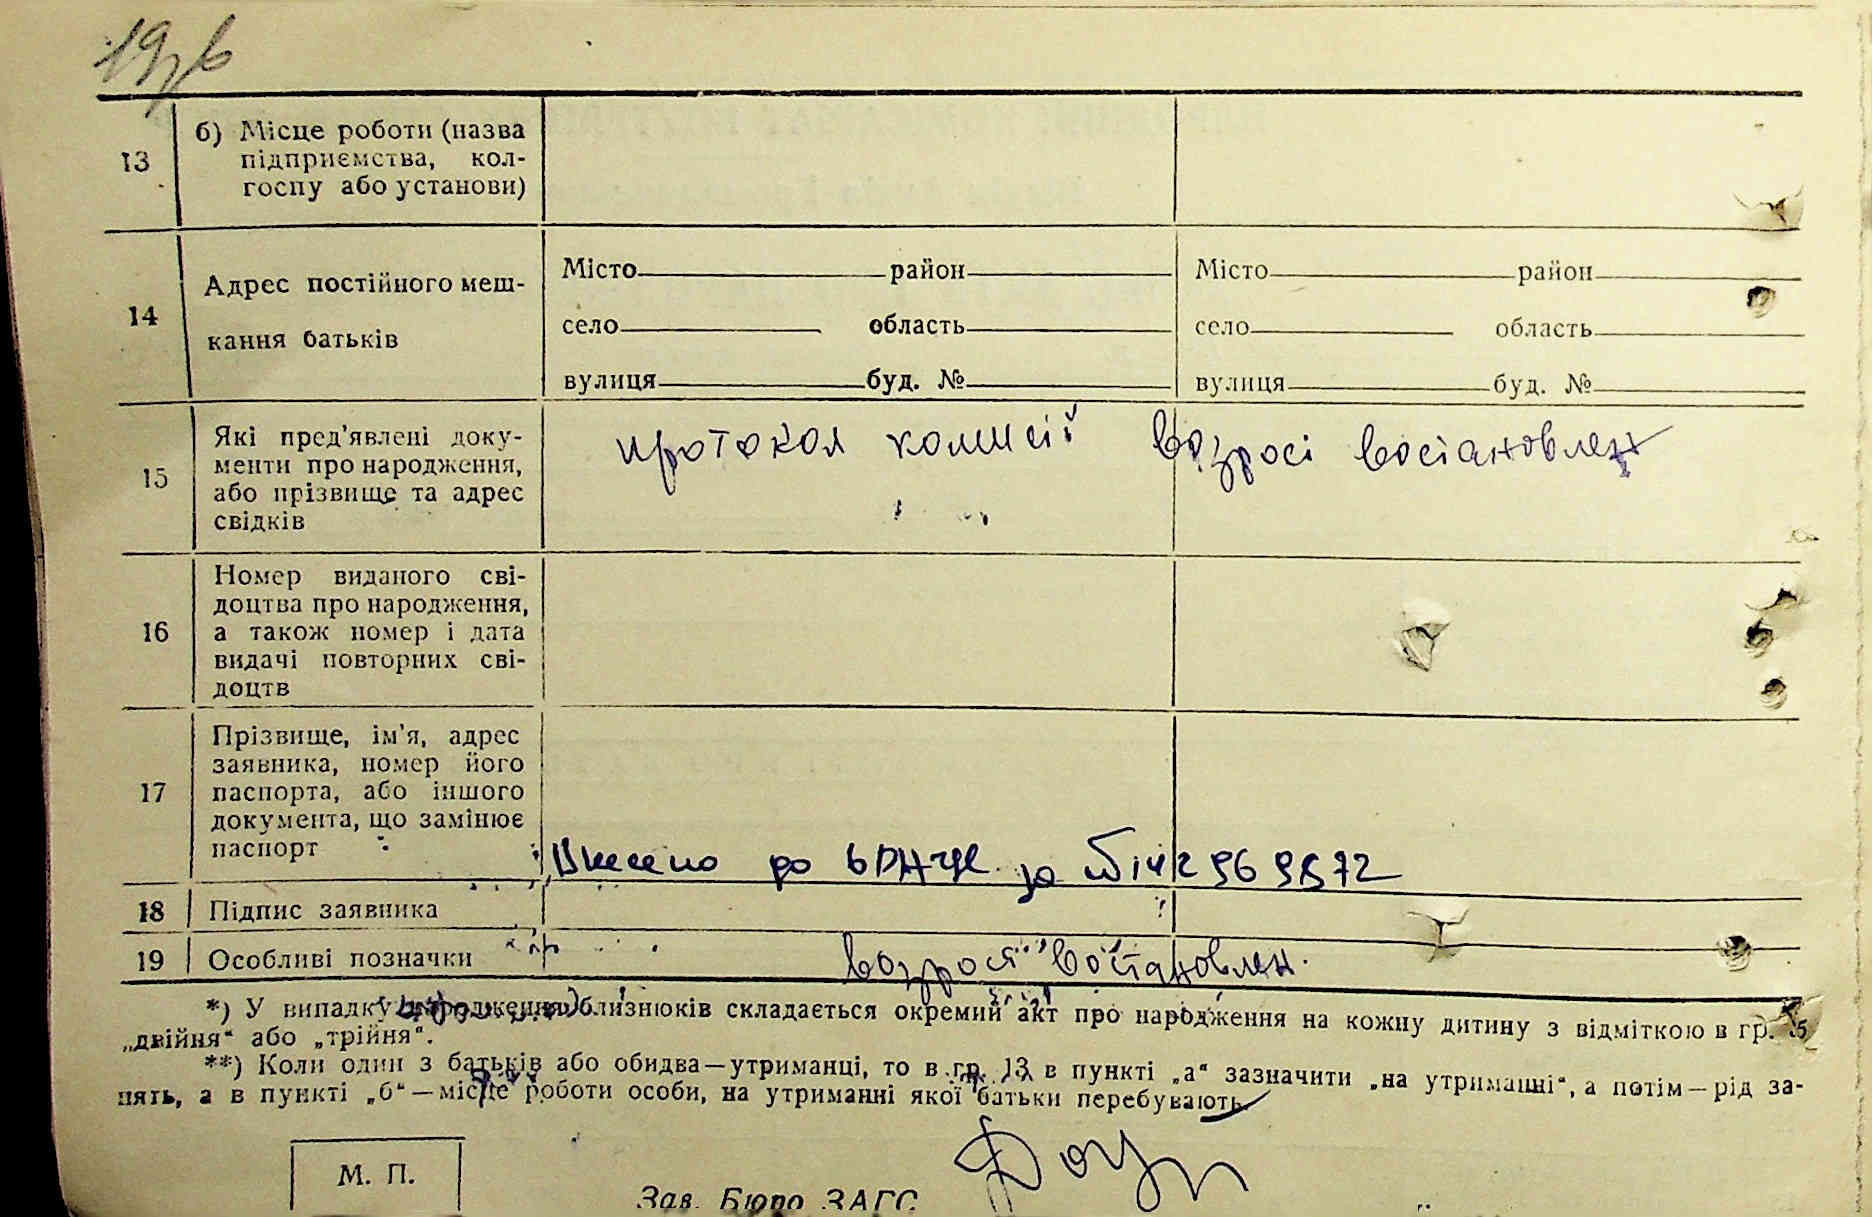 13
б) Місце роботи (назва
підприємства, кол-
госпу або установи)
14
Адрес постійного меш-
кання батьків
Місто район
село область
вулиця буд. №
Місто район
село область
вулиця буд. №
15
Які пред'явлені доку-
менти про народження,
або прізвище та адрес
свідків
протокол комисії возросі востановлен
16
Номер виданого сві-
доцтва про народження,
а також номер і дата
видачі повторних сві-
доцтв
17
Прізвище, ім'я, адрес
заявника, номер його
паспорта, або іншого
документа, що замінює
паспорт
Внесено до за
18
Підпис заявника
19
Особливі позначки
востановлен.
*) У випадку народження близнюків складається окремий акт про народження на кожну дитину з відміткою в гр. 5
„двійня“ або „трійня“.
**) Коли один з батьків або обидва—утриманці, то в гр. 13 в пункті „а“ зазначити „на утриманні“, а потім—рід за-
нять, а в пункті „б“—місце роботи особи, на утриманні якої батьки перебувають.
М. П.
Зав. Бюро ЗАГС